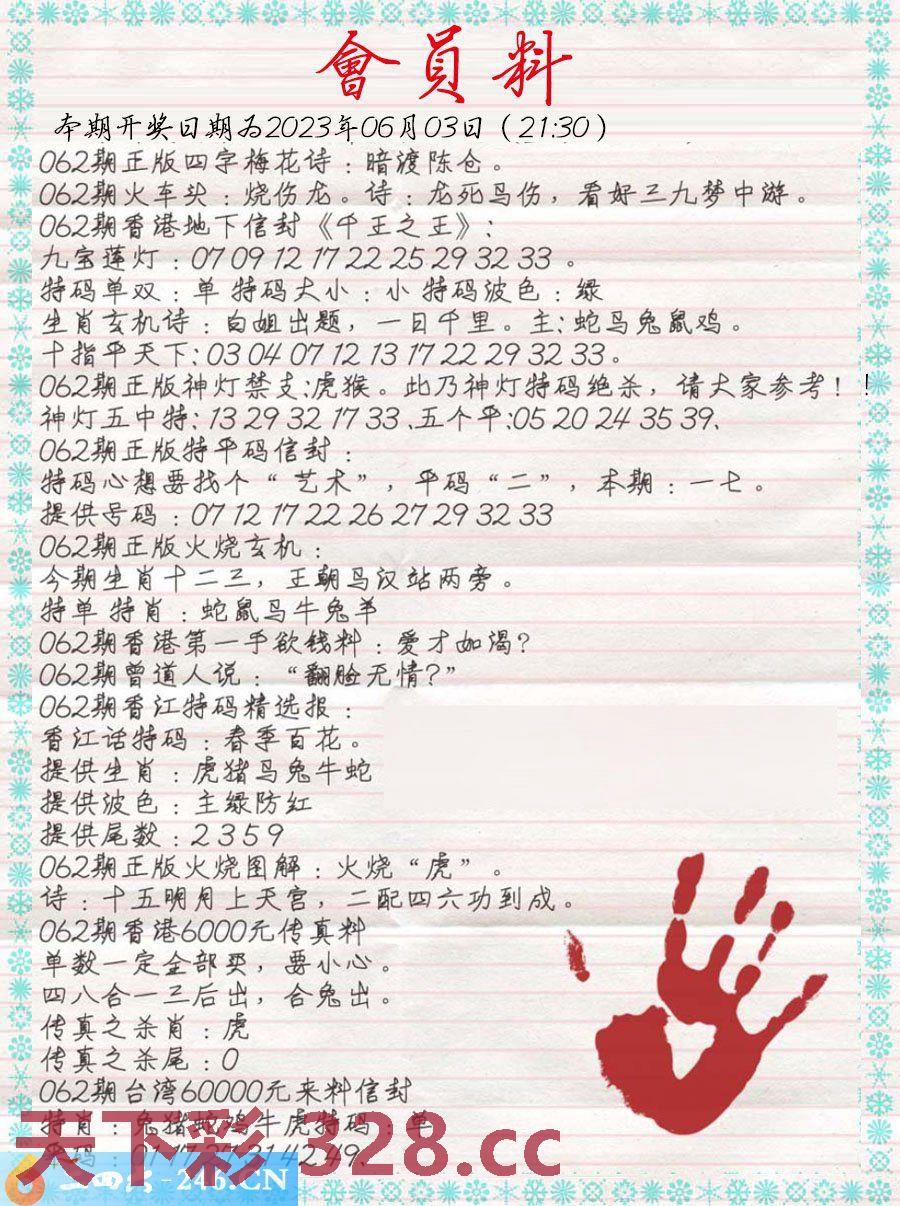 會員料
本期开奖日期为2023年06月03日（21:30）
062期正版四字梅花诗：暗渡陈仓。
062期火车头：烧伤龙。诗：龙死鸟伤，看好三九梦中游。
062期香港地下信封《千王之王》:
九宝莲灯：07 09 12 17 22 25 29 32 33 。
特码单双：单 特码大小：小 特码波色：绿
生肖玄机诗：白姐出题，一日千里。主:蛇马兔鼠鸡。
十指平天下:03 04 07 12 13 17 22 29 32 33。
062期正版神灯禁支:虎猴。此乃神灯特码绝杀，请大家参考！!
神灯五中特: 13 29 32 17 33 、五个平:05 20 24 35 39、
062期正版特平码信封：
特码心想要找个“艺术”，平码“二”，本期：一七。
提供号码：07 12 17 22 26 27 29 32 33
062期正版火烧玄机：
今期生肖十二三，王朝马汉站两旁。
特单 特肖：蛇鼠马牛兔羊
062期香港第一手欲钱料：爱才如渴?
062期曾道人说：“翻脸无情?”
062期香江特码精选报：
香江话特码：春季百花。
提供生肖：虎猪马兔牛蛇
提供波色：主绿防红
提供尾数：2 3 5 9
062期正版火烧图解：火烧“虎”。
诗：十五明月上天宫，二配四六功到成。
062期香港6000元传真料
单数一定全部买，要小心。
四八合一三后出，合兔出。
传真之杀肖：虎
传真之杀尾：0
062期台湾60000元来料信封
特肖：兔猪蛇鸡牛虎特码：单
平码：01 17 27 31 42 49、
天下彩 328.cc
二四六-246.CN